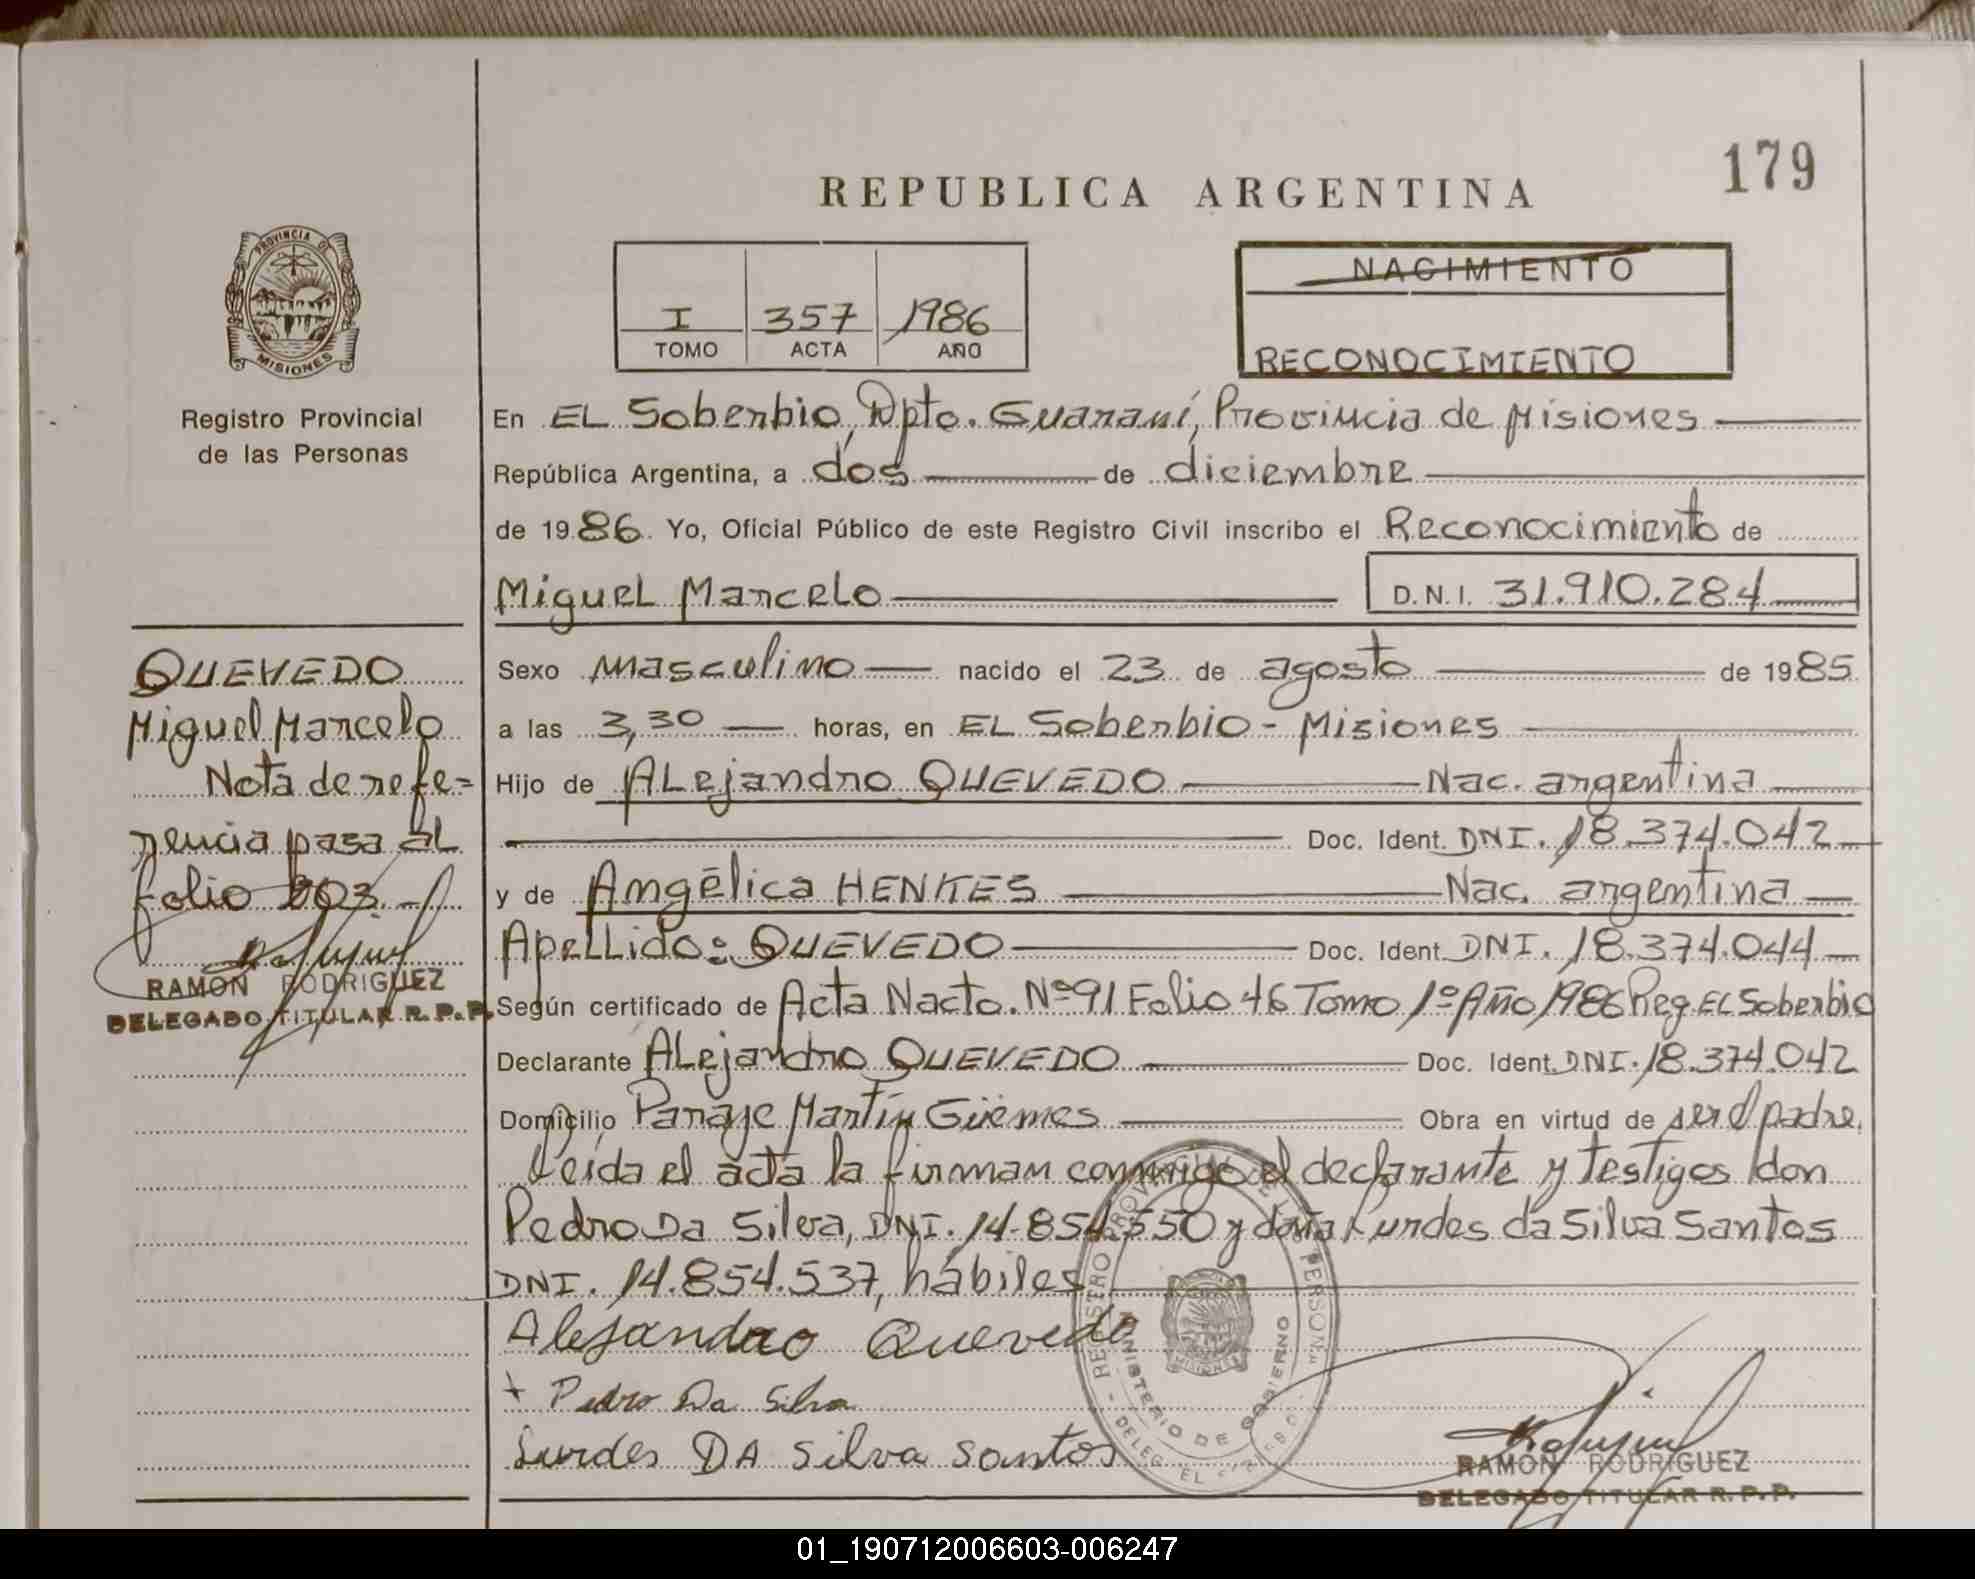 179
REPUBLICA ARGENTINA
PROVINCIA DE
MISIONES
Registro Provincial
de las Personas
I 357 1986
TOMO ACTA AÑO
NACIMIENTO
RECONOCIMIENTO
En EL Soberbio, Dpto. Guaraní, Provincia de Misiones
República Argentina, a dos de diciembre
de 1986. Yo, Oficial Público de este Registro Civil inscribo el Reconocimiento de
Miguel Marcelo D.N.I. 31.910.284
QUEVEDO
Miguel Marcelo
Nota de refe=
rencia pasa al
folio 203.-
RAMÓN RODRIGUEZ
DELEGADO TITULAR R.P.P.
Sexo masculino nacido el 23 de agosto de 1985
a las 3,30 horas, en EL Soberbio - Misiones
Hijo de Alejandro QUEVEDO Nac. argentina
Doc. Ident. DNI. 18.374.042
y de Angélica HENKES Nac. argentina
Apellido: QUEVEDO Doc. Ident. DNI. 18.374.044
Según certificado de Acta Nacto. Nº 91 Folio 46 Tomo 1º Año 1986 Reg. EL Soberbio
Declarante Alejandro QUEVEDO Doc. Ident. DNI. 18.374.042
Domicilio Paraje Martín Güemes Obra en virtud de ser el padre.
Leída el acta la firman conmigo el declarante y testigos don
Pedro Da Silva, DNI. 14.854.550 y doña Lurdes da Silva Santos
DNI. 14.854.537, hábiles
Alejandro Quevedo
+ Pedro Da Silva
Lurdes DA Silva Santos
MINISTERIO DE GOBIERNO
MISIONES
RAMÓN RODRIGUEZ
DELEGADO TITULAR R.P.P.
01_190712006603-006247